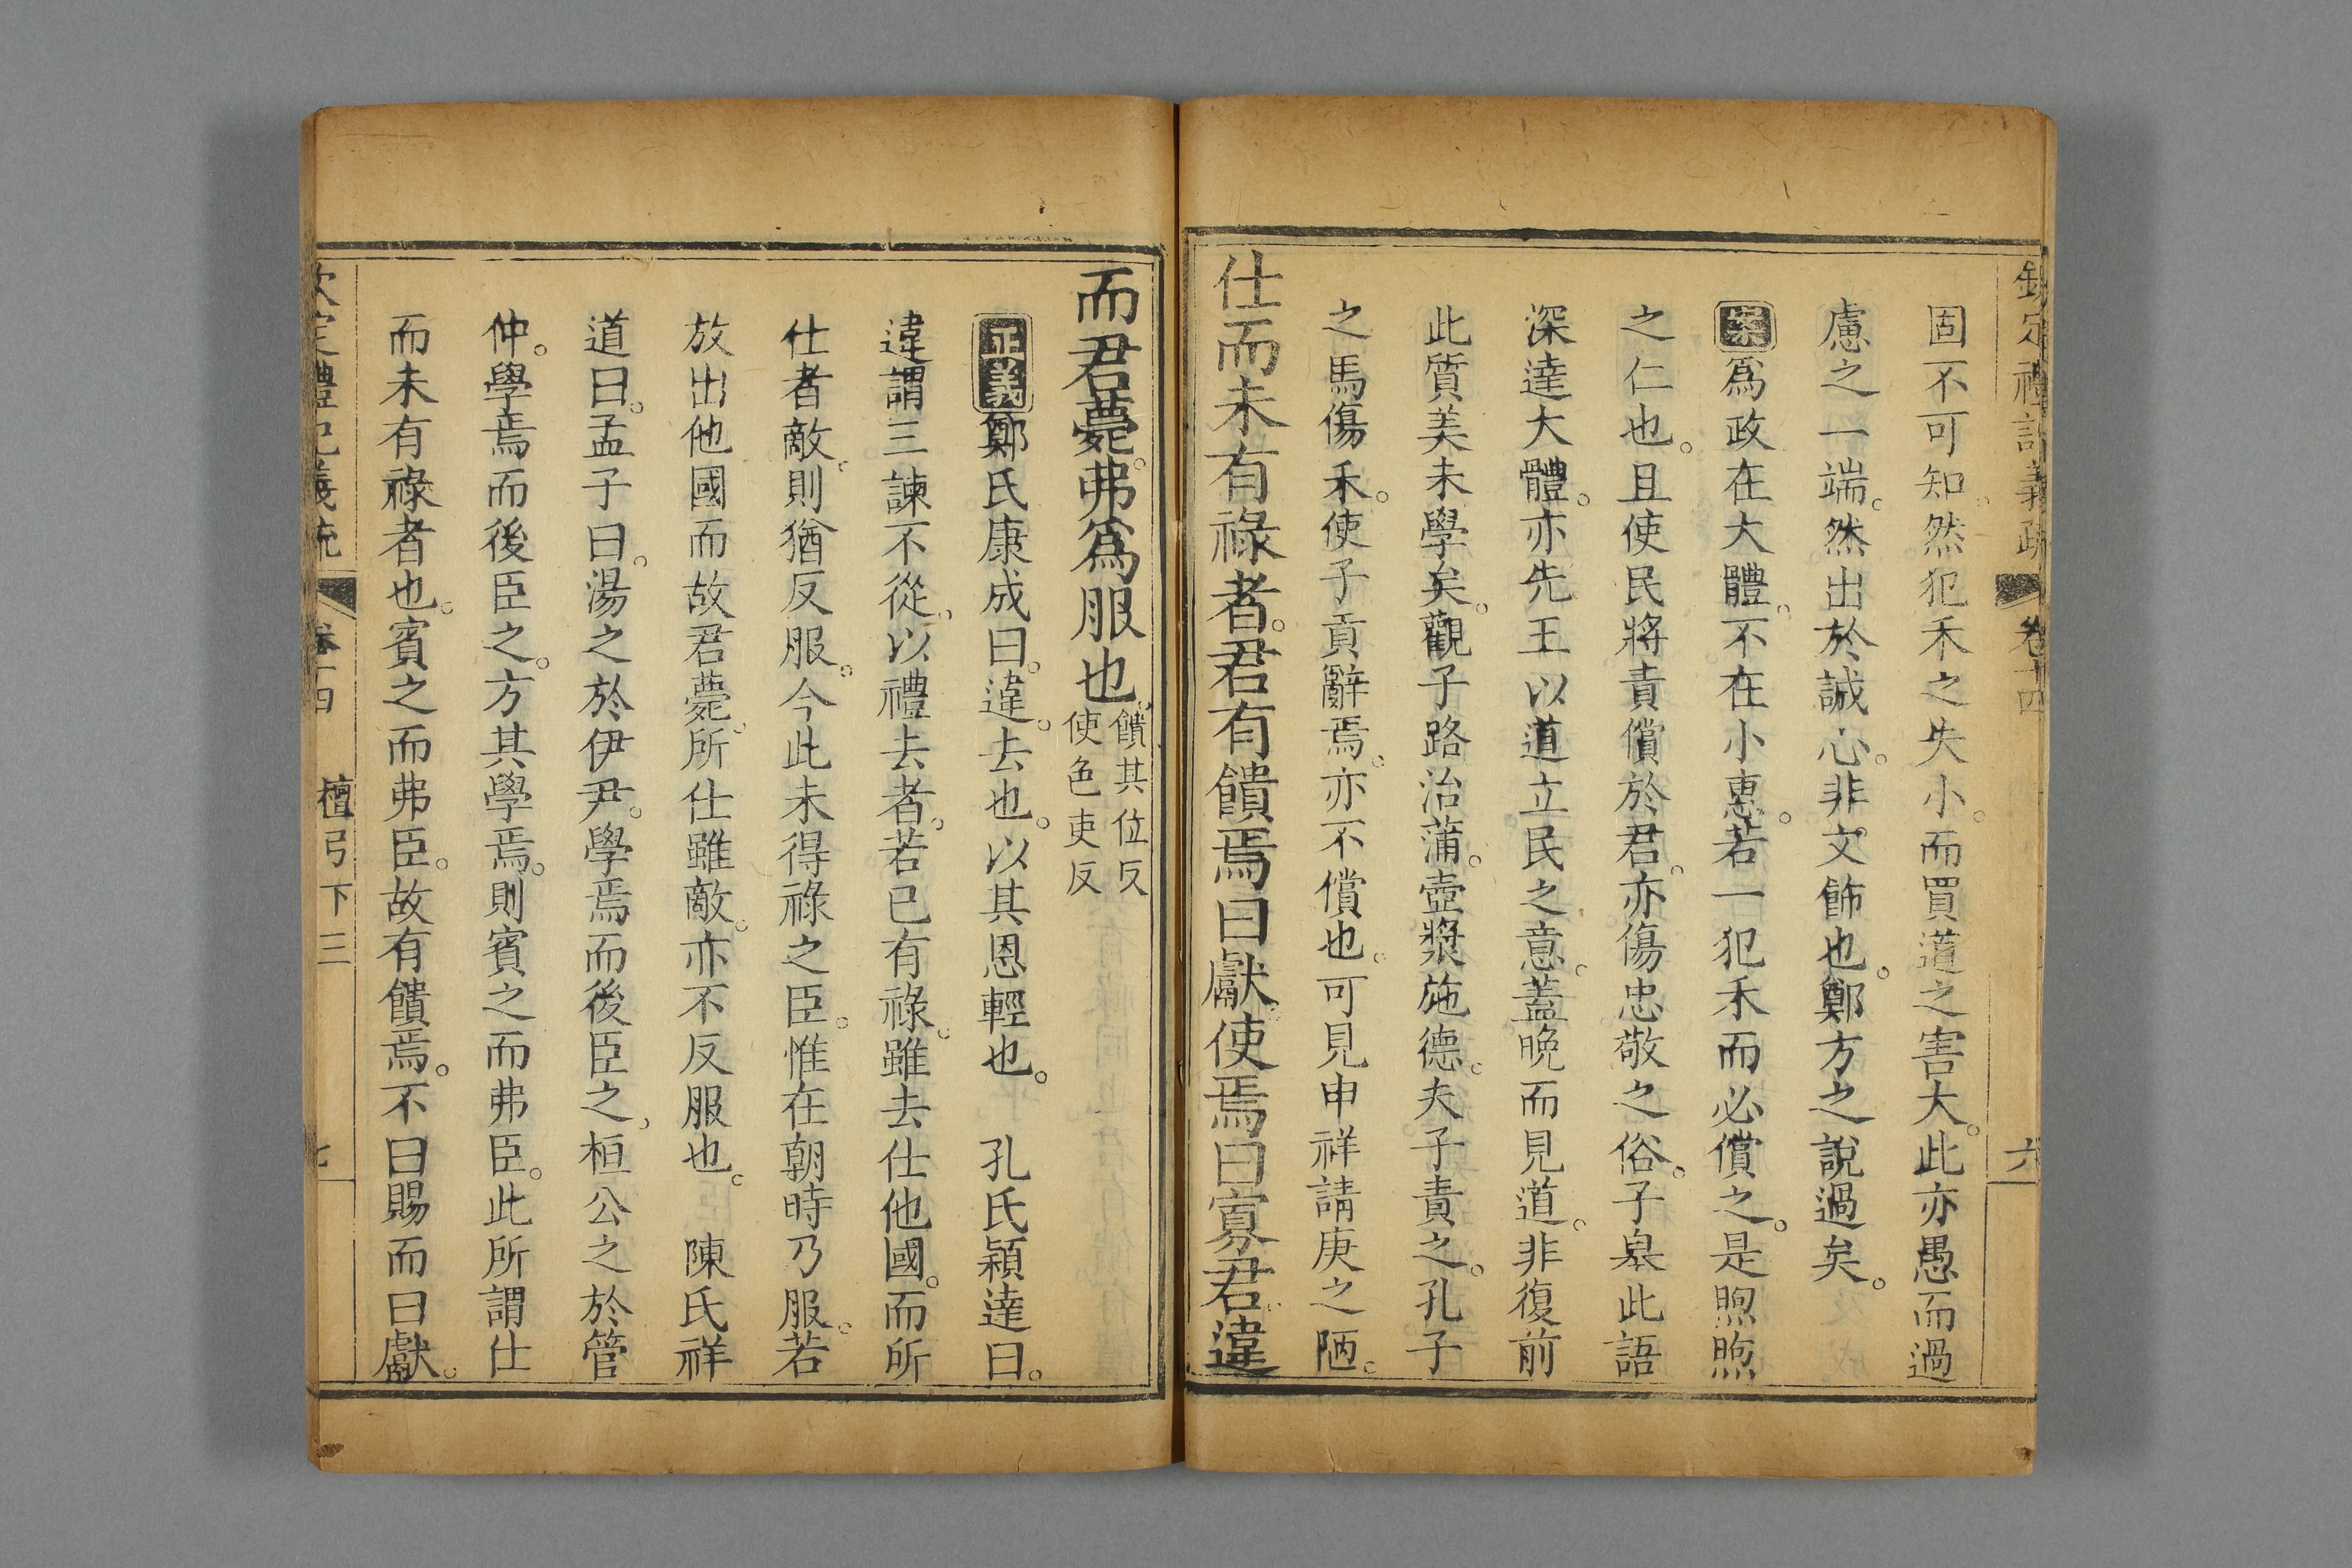 欽定禮記義疏 卷十四 六
固不可知。然犯禾之失小。而買道之害大。此亦愚而過
慮之一端。然出於誠心。非文飾也。鄭方之說過矣。
案為政在大體。不在小惠。若一犯禾而必償之。是煦煦
之仁也。且使民將責償於君。亦傷忠敬之俗。子皋此語
深達大體。亦先王以道立民之意。蓋晚而見道。非復前
此質美未學矣。觀子路治蒲。壺漿施德。夫子責之。孔子
之馬傷禾。使子貢辭焉。亦不償也。可見申祥請庚之陋。
仕而未有祿者。君有饋焉曰獻。使焉曰寡君。違
而君薨。弗為服也。饋其位反
使色吏反
正義鄭氏康成曰。違。去也。以其恩輕也。 孔氏穎達曰。
違謂三諫不從。以禮去者。若已有祿。雖去仕他國。而所
仕者敵。則猶反服。今此未得祿之臣。惟在朝時乃服。若
放出他國而故君薨。所仕雖敵。亦不反服也。 陳氏祥
道曰。孟子曰。湯之於伊尹。學焉而後臣之。桓公之於管
仲。學焉而後臣之。方其學焉。則賓之而弗臣。此所謂仕
而未有祿者也。賓之而弗臣。故有饋焉。不曰賜而曰獻。
欽定禮記義疏 卷十四 檀弓下三 七